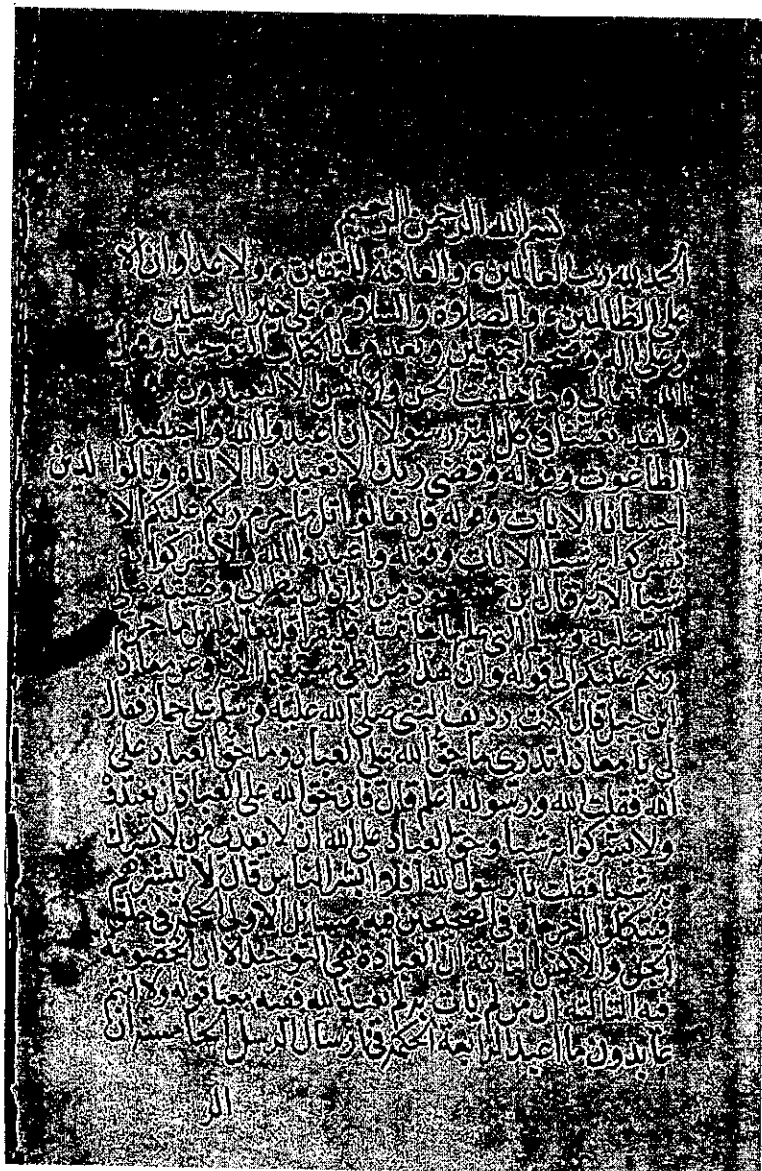 بسم الله الرحمن الرحيم
الحمد لله رب العالمين والعاقبة للمتقين ولا عدوان الا
على الظالمين والصلاة والسلام على خير المرسلين
وعلى اله وصحبه اجمعين وبعد هذا كتاب التوحيد وقول
الله تعالى وما خلقت الجن والانس الا ليعبدون
ولقد بعثنا في كل امة رسولا ان اعبدوا الله واجتنبوا
الطاغوت وقوله وقضى ربك الا تعبدوا الا اياه وبالوالدين
احسانا الايات وقوله قل تعالوا اتل ما حرم ربكم عليكم الا
تشركوا به شيا الايات وقوله واعبدوا الله ولا تشركوا به
شيا الاية قال ابن من اراد ان ينظر الى وصية
الله عليه وسلم التي عليها خاتمه فليقرا قل تعالوا اتل ما حرم
ربكم عليكم الى قوله وان هذا صراطي مستقيما الاية وعن معاذ
ابن جبل قال كنت رديف النبي صلى الله عليه وسلم على حمار فقال
لي يا معاذ اتدري ما حق الله على العباد وما حق العباد على
الله فقلت الله ورسوله اعلم قال فان حق الله على العباد ان يعبدوه
ولا يشركوا به شيا وحق العباد على الله ان لا يعذب من لا يشرك
به شيا فقلت يا رسول الله افلا ابشر الناس قال لا تبشرهم
فيتكلوا اخرجاه في الصحيحين فيه مسائل الاولى الحكمة في خلق
الجن والانس الثانيه ان العباده هي التوحيد لان الخصومة
فيه الثالثة ان من لم يات به لم يعبد الله ففيه معنا قوله ولا انتم
عابدون ما اعبد الرابعة الحكمة في ارسال الرسل الخامسة ان
الر